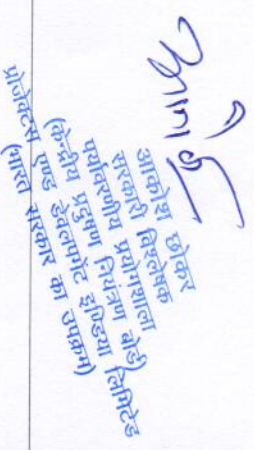 आकोश छोकर
सरकारी विश्लेषक
पर्यावरणीय प्रयोगशाला
(केन्द्रीय प्रदूषण नियंत्रण बोर्ड)
प्रोजेक्टस एण्ड डेवलपमेंट इण्डिया लिमिटेड
(भारत सरकार का उपक्रम)